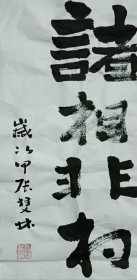 諸相非相
歲次甲辰雙林